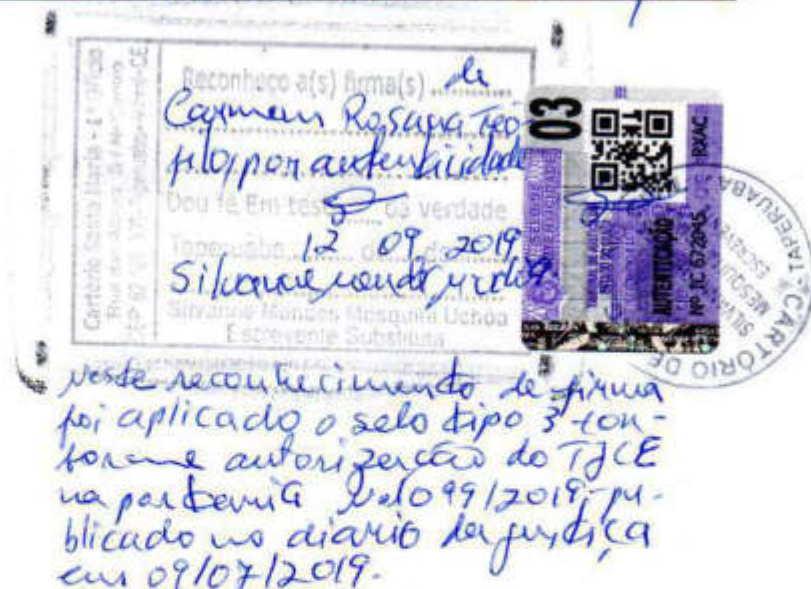 Cartório Santa Maria - 1º Ofício
Reconheço a(s) firma(s) de
Carmem Rosana Teó-
filo, por autenticidade
Dou fé. Em test. da verdade
Taperuaba, 12 de 09 de 2019
Silvanne Mendes
Silvanne Mendes Mesquita Uchoa
Escrevente Substituta
03
AUTENTICAÇÃO
Nº JC 672045
RXAC
CARTÓRIO DE TAPERUABA
neste reconhecimento de firma
foi aplicado o selo tipo 3 con-
forme autorização do TJCE
na portaria 1099/2019, pu-
blicado no diario da justiça
em 09/07/2019.